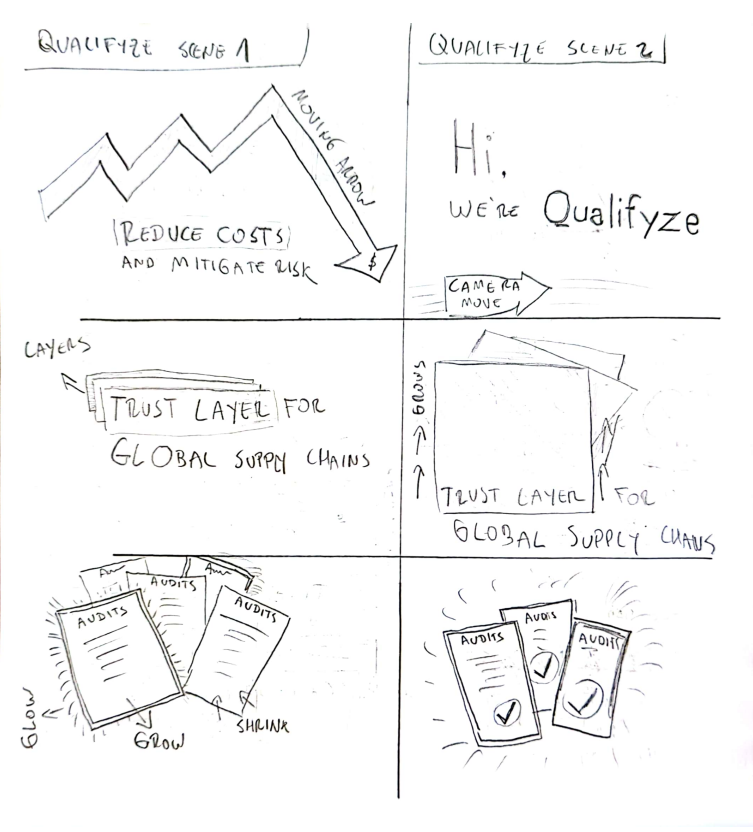 QUALIFYZE SCENE 1
MOVING ARROW
REDUCE COSTS
AND MITIGATE RISK
$
QUALIFYZE SCENE 2
Hi,
WE'RE Qualifyze
CAMERA
MOVE
LAYERS
TRUST LAYER FOR
GLOBAL SUPPLY CHAINS
GROWS
TRUST LAYER FOR
GLOBAL SUPPLY CHAINS
AUDITS
AUDITS
AUDITS
GLOW
GROW
SHRINK
AUDITS
AUDITS
AUDITS